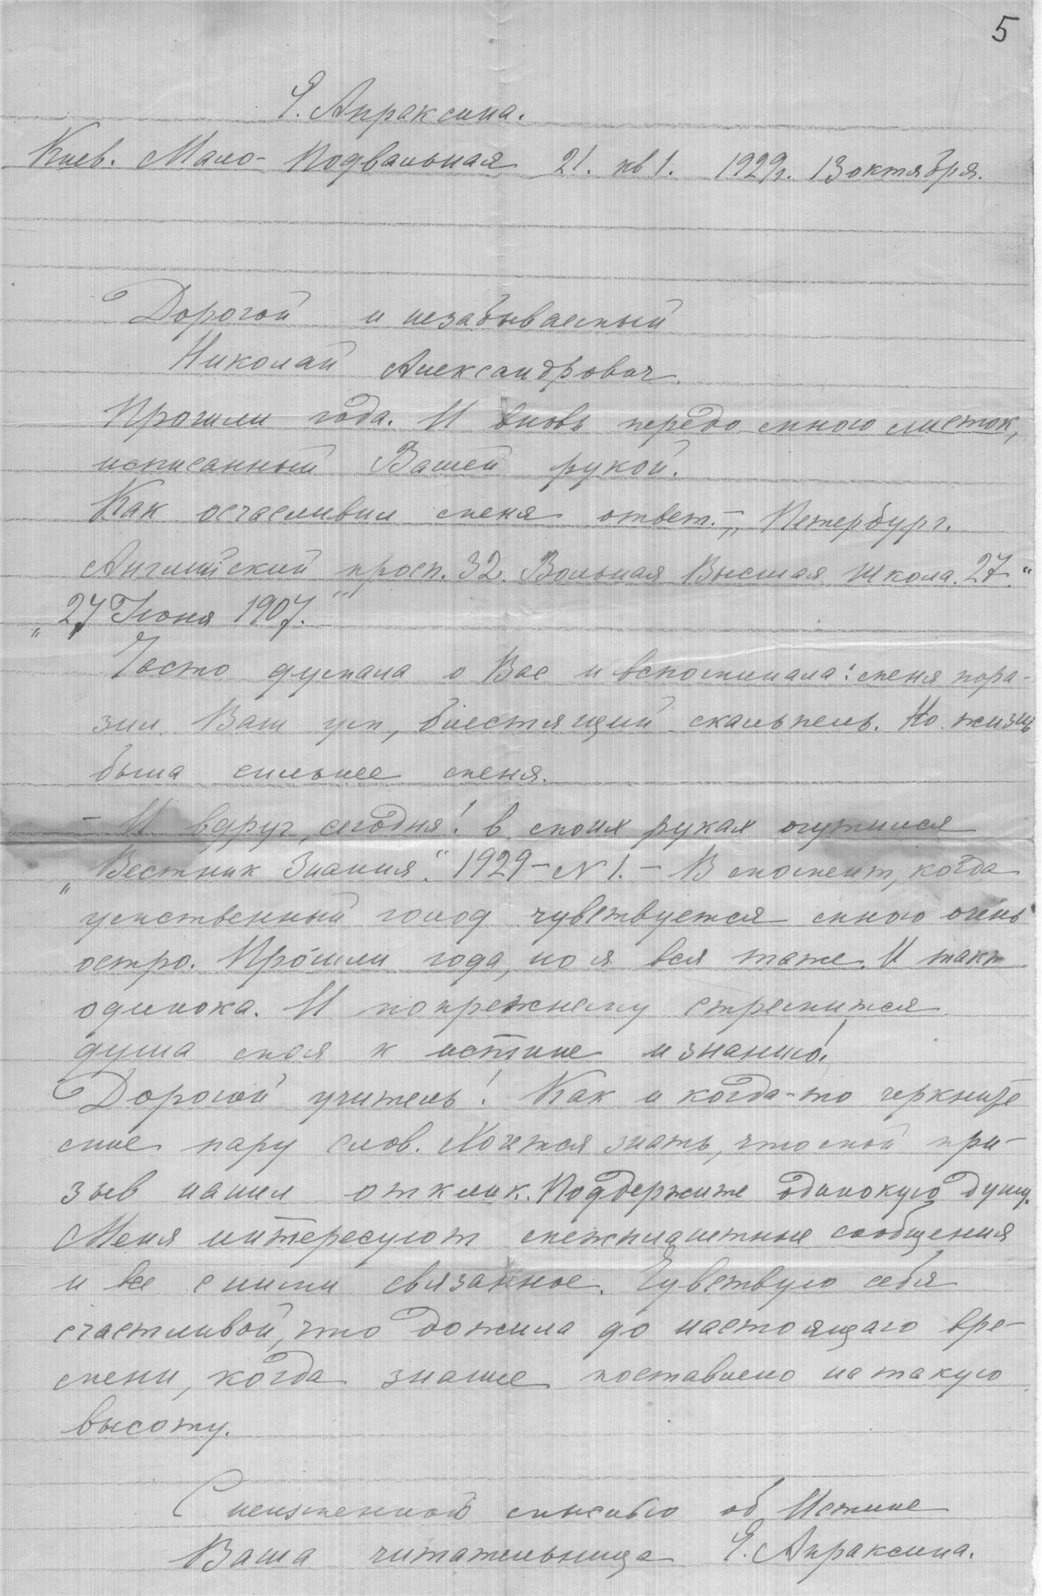 5
Е. Апраксина.
Киев. Мало-Подвальная 21. кв 1. 1929г. 13 октября.
Дорогой и незабываемый
Николай Александрович.
Прошли года. И вновь передо мною листок,
исписанный Вашей рукой.
Как осчасливил меня ответ. – „Петербург.
Английский просп. 32. Вольная Высшая Школа. 27."
„27 Июня 1907."
Часто думала о Вас и вспоминала: меня пора-
зил Ваш ум, блестящий скальпель. Но жизнь
была сильнее меня.
– И вдруг, сегодня! в моих руках очутился
„Вестник Знания". 1929 – N 1. – В момент, когда
умственный голод чувствуется мною очень
остро. Прошли года, но я вся таже. И также
одинока. И попрежнему стремится
душа моя к истине и знанию!
Дорогой учитель! Как и когда-то черкните
мне пару слов. Хочется знать, что мой при-
зыв нашел отклик. Поддержите одинокую душу.
Меня интересуют межпланетные сообщения
и все с ними связанное. Чувствую себя
счастливой, что дожила до настоящаго вре-
мени, когда знание поставлено на такую
высоту.
С неизменной мыслью об Истине
Ваша читательница Е. Апраксина.